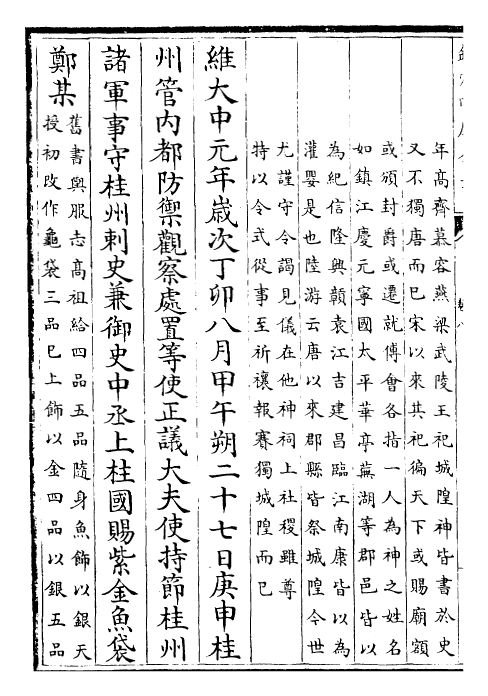 年高齊慕容燕梁武陵王祀城隍神皆書於史
又不獨唐而已宋以來其祀徧天下或賜廟額
或頒封爵或遷就傅會各指一人為神之姓名
如鎮江慶元寧國太平華亭蕪湖等郡邑皆以
為紀信隆興贛袁江吉建昌臨江南康皆以為
灌嬰是也陸游云唐以來郡縣皆祭城隍今世
尤謹守令謁見儀在他神祠上社稷雖尊
特以令式從事至祈禳報賽獨城隍而已
維大中元年歲次丁卯八月甲午朔二十七日庚申桂
州管内都防禦觀察處置等使正議大夫使持節桂州
諸軍事守桂州刺史兼御史中丞上柱國賜紫金魚袋
鄭某
舊書輿服志高祖給四品五品隨身魚飾以銀天
授初改作龜袋三品已上飾以金四品以銀五品